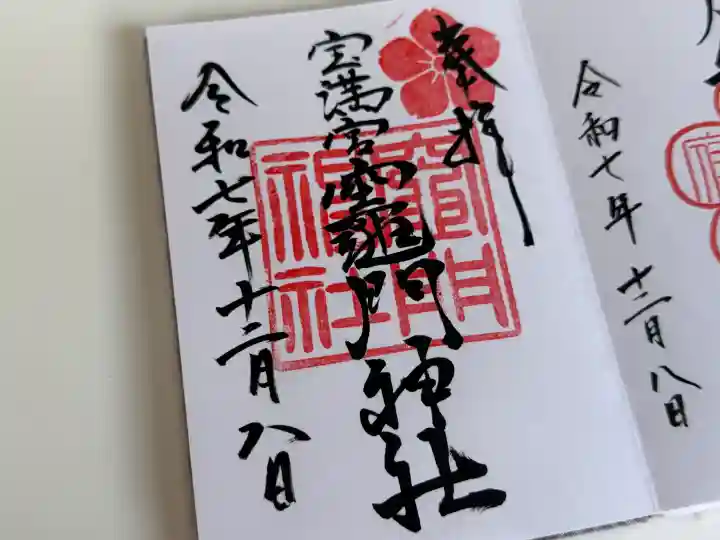 令和七年十二月八日
奉拝
宝満宮竈門神社
令和七年十二月八日
竈門
神社